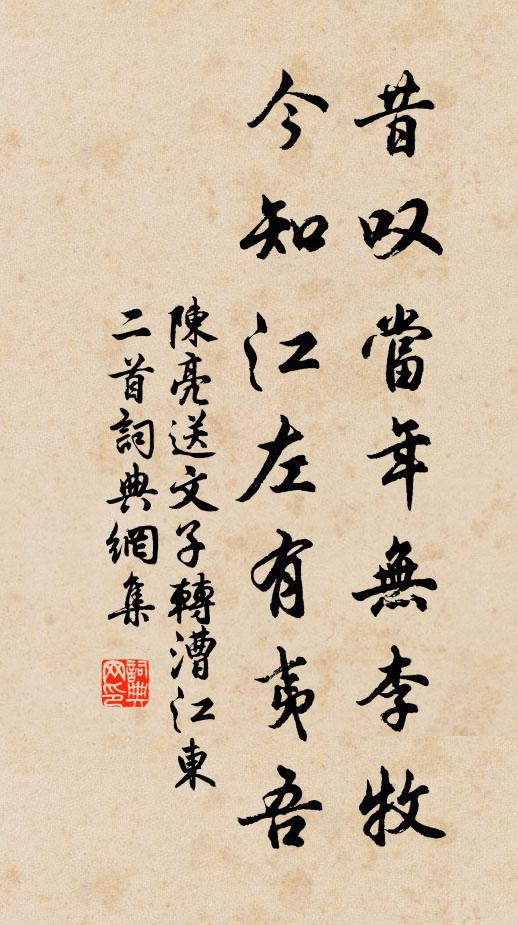 昔叹當年無李牧
今知江左有夷吾
陳亮送文子轉漕江東
二首詞典網集
詞典网印